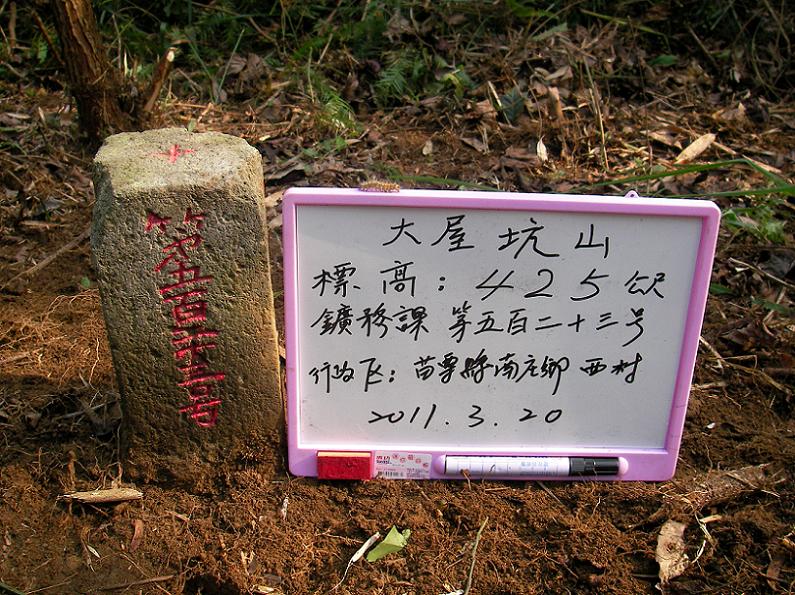 第五百二十三号
大屋坑山
標高：425公尺
鑛務課 第五百二十三号
行政区：苗栗縣南庄鄉西村
2011.3.20